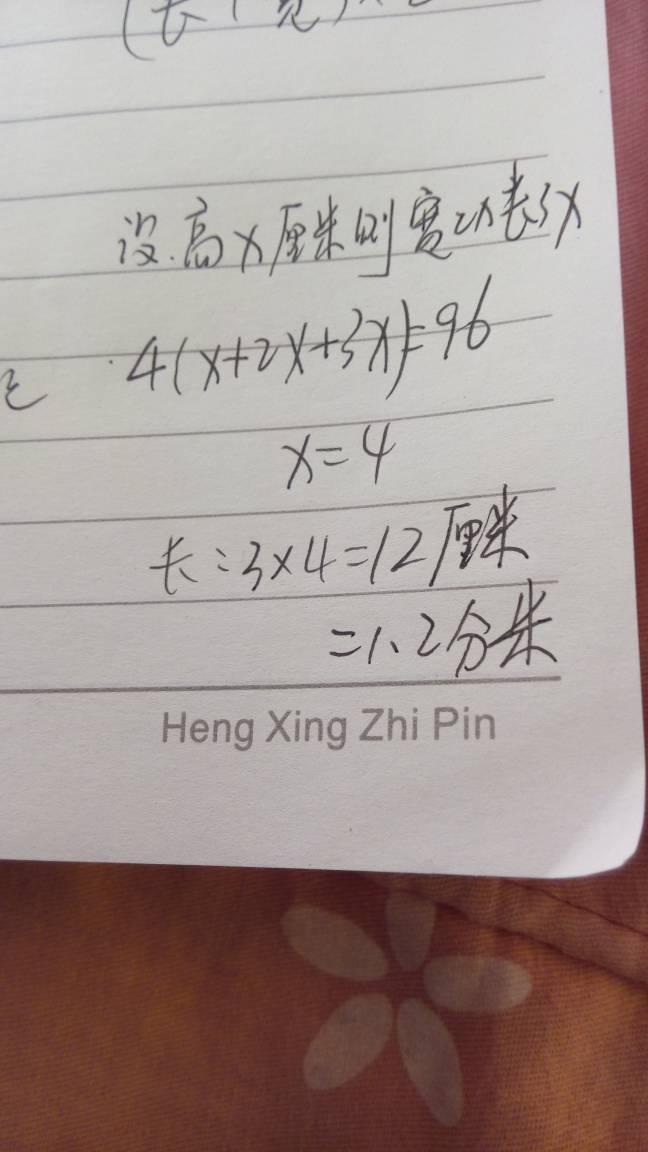 (长+宽)×2
设.高x厘米则宽2x长3x
4(x+2x+3x)=96
x=4
长:3×4=12厘米
=1.2分米
Heng Xing Zhi Pin